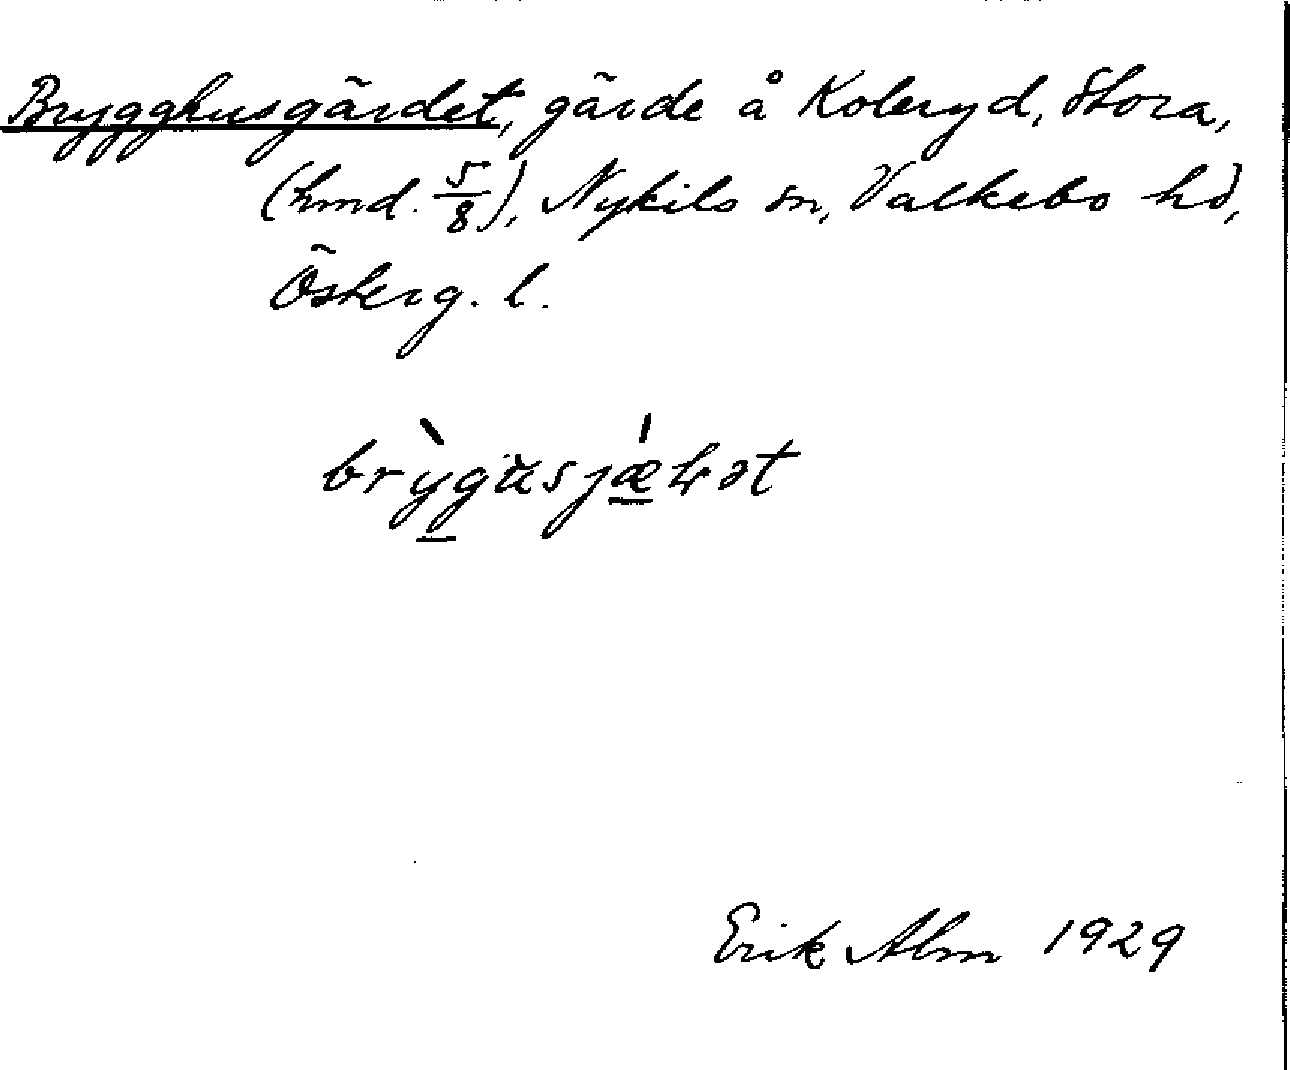 Brygghusgärdet, gärde å Koleryd, Stora,
(hmd. 5/8), Nykils sn, Valkebo hd,
Österg. l.
Erik Alm 1929